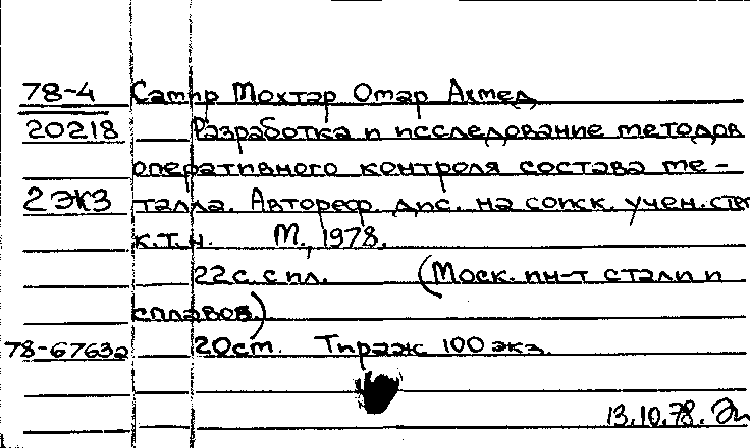 78-4 Самир Мохтар Омар Ахмед
20218 Разработка и исследование методов
оперативного контроля состава ме-
2 экз талла. Автореф. дис. на соиск. учен. степ
к.т.н. М., 1978.
22 с. с ил. (Моск. ин-т стали и
сплавов.)
78-67632 20 см. Тираж 100 экз.
13.10.78.